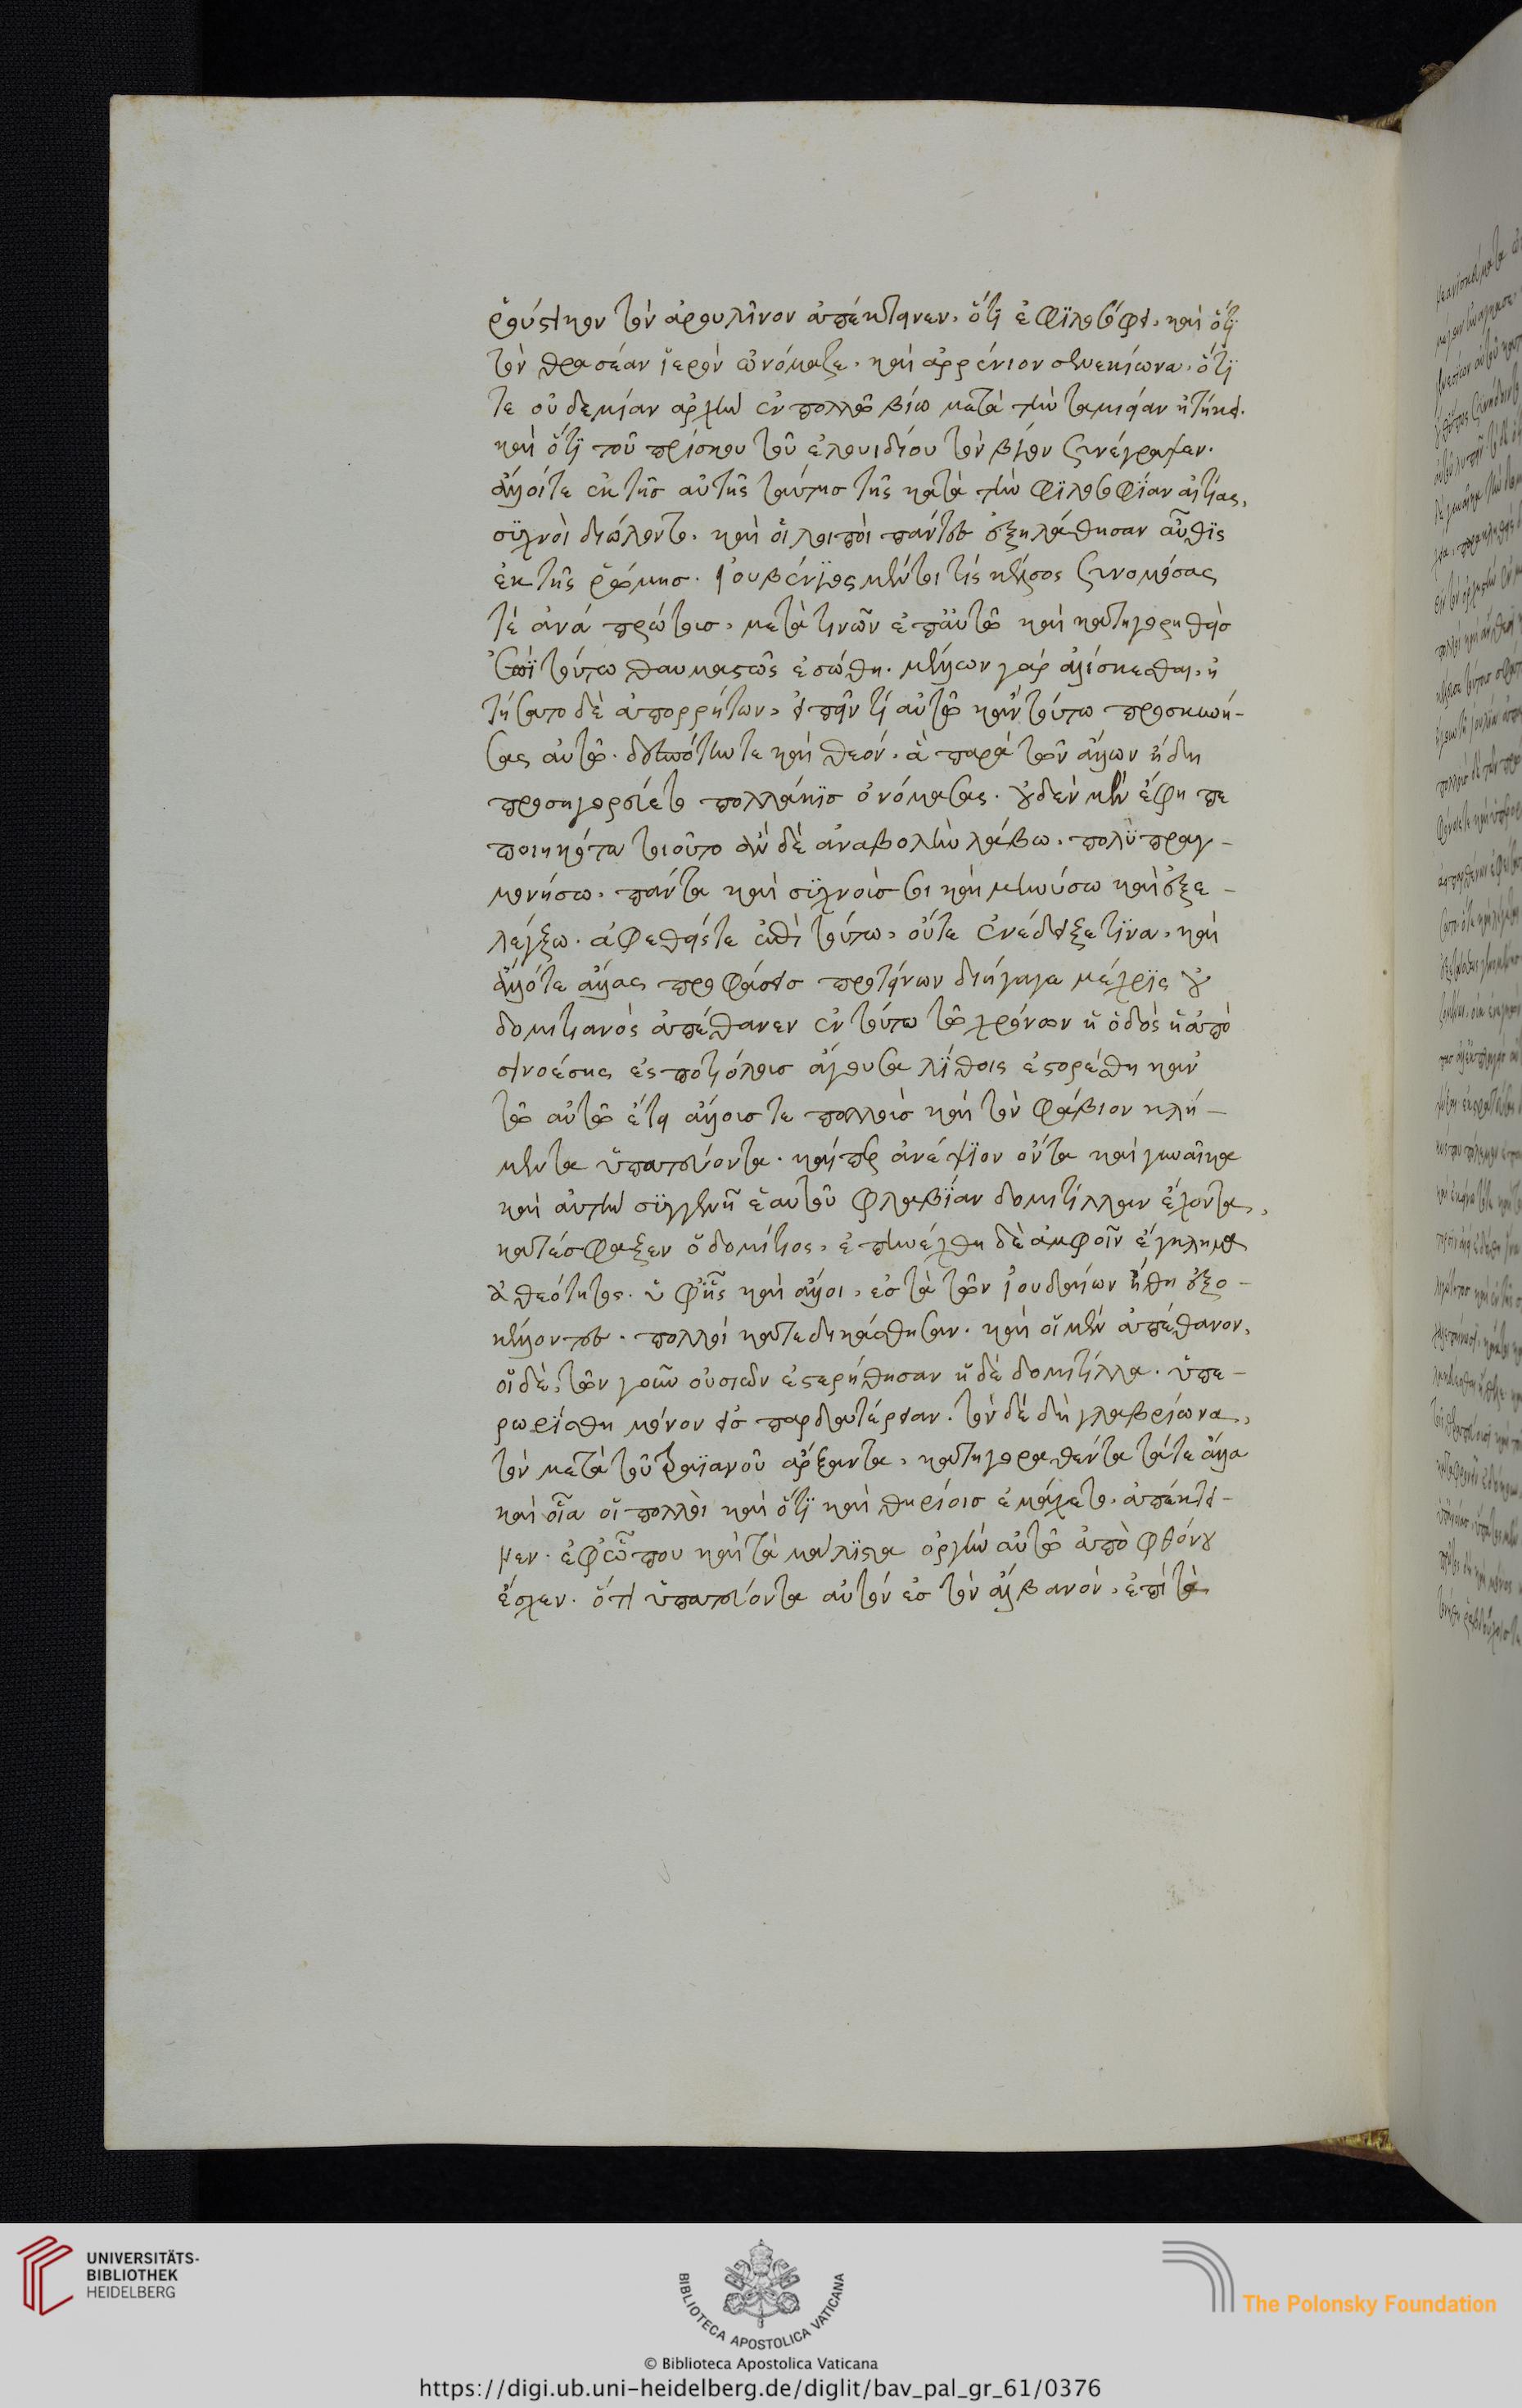 ῥούστικον τὸν ἀρουλῖνον ἀπέκτεινεν, ὅτι ἐφιλοσόφει, καὶ ὅτι
τὸν θρασέαν ἱερὸν ὠνόμαζε, καὶ ἀρρένιον σενεκίωνα, ὅτι
τε οὐδεμίαν ἀρχὴν ἐν πολλῷ βίῳ μετὰ τὴν ταμιείαν ᾔτησε.
καὶ ὅτι τοῦ πρίσκου τοῦ ἐλουιδίου τὸν βίον συνέγραψεν.
ἄλλοί τε ἐκ τῆς αὐτῆς ταύτης τῆς κατὰ τὴν φιλοσοφίαν αἰτίας,
συχνοὶ διώλοντο. καὶ οἱ λοιποὶ πάντες ἐξηλάθησαν αὖθις
ἐκ τῆς ῥώμης. ἰουβέντιος μέντοι τις κέλσος συνομόσας
τὲ ἀνὰ πρώτοις, μετὰ τινῶν ἐπ' αὐτῷ καὶ κατηγορηθεὶς
ἐπὶ τούτῳ θαυμαστῶς ἐσώθη. μέλλων γὰρ ἁλίσκεσθαι, ᾐ
τήσατο δὲ ἀπορρήτων, εἰπεῖν τι αὐτῷ κἀν τούτῳ προσκυνή-
σας αὐτῷ. δεσπότην τε καὶ θεόν, ἃ παρὰ τῶν ἄλλων ἤδη
προσηγορεύετο πολλάκις ὀνομάσας. οὐδὲν μὲν ἔφη πε
ποιηκότα τοιοῦτο ἂν δὲ ἀναβολὴν λάβω, πολυπραγ-
μονήσω, πάντα καὶ συχνούς σοι καὶ μηνύσω καὶ ἐξε-
λέγξω. ἀφεθείς τε ἐπὶ τούτῳ, οὔτε ἐνέδειξέ τινα, καὶ
ἄλλοτε ἄλλας προφάσεις προτείνων διήγαγε μέχρις οὗ
δομιτιανὸς ἀπέθανεν ἐν τούτῳ τῷ χρόνῳ ἡ ὁδὸς ἡ ἀπὸ
σινοέσης ἐς ποτιόλους ἄγουσα λίθοις ἐστορέσθη κἀν
τῷ αὐτῷ ἔτει ἄλλους τε πολλοὺς καὶ τὸν φάβιον κλή-
μεντα ὑπατεύοντα. καίπερ ἀνέψιον ὄντα καὶ γυναῖκα
καὶ αὐτὴν συγγενῆ ἑαυτοῦ φλαβίαν δομιτίλλαν ἔχοντα,
κατέσφαξεν ὁ δομίτιος, ἐπηνέχθη δὲ ἀμφοῖν ἔγκλημα
ἀθεότητος. ὑφ' ἧς καὶ ἄλλοι, ἐς τὰ τῶν ἰουδαίων ἤθη ἐξο-
κέλλοντες. πολλοὶ κατεδικάσθησαν. καὶ οἱ μὲν ἀπέθανον,
οἱ δὲ, τῶν γοῦν οὐσιῶν ἐστερήθησαν ἡ δὲ δομιτίλλα. ὑπε-
ρωρίσθη μόνον εἰς πανδατέρειαν. τὸν δὲ δὴ γλαβρίωνα,
τὸν μετὰ τοῦ τραϊανοῦ ἄρξαντα, κατηγορηθέντα τά τε ἄλλα
καὶ οἷα οἱ πολλοὶ καὶ ὅτι καὶ θηρίοις ἐμάχετο, ἀπέκτει-
νεν. ἐφ' ᾧ που καὶ τὰ μάλιστα ὀργὴν αὐτῷ ἀπὸ φθόνου
ἔσχεν. ὅτι ὑπατεύοντα αὐτὸν ἐς τὸν ἀλβανόν, ἐπὶ τὰ
UNIVERSITÄTS-
BIBLIOTHEK
HEIDELBERG
BIBLIOTECA APOSTOLICA VATICANA
The Polonsky Foundation
© Biblioteca Apostolica Vaticana
https://digi.ub.uni-heidelberg.de/diglit/bav_pal_gr_61/0376